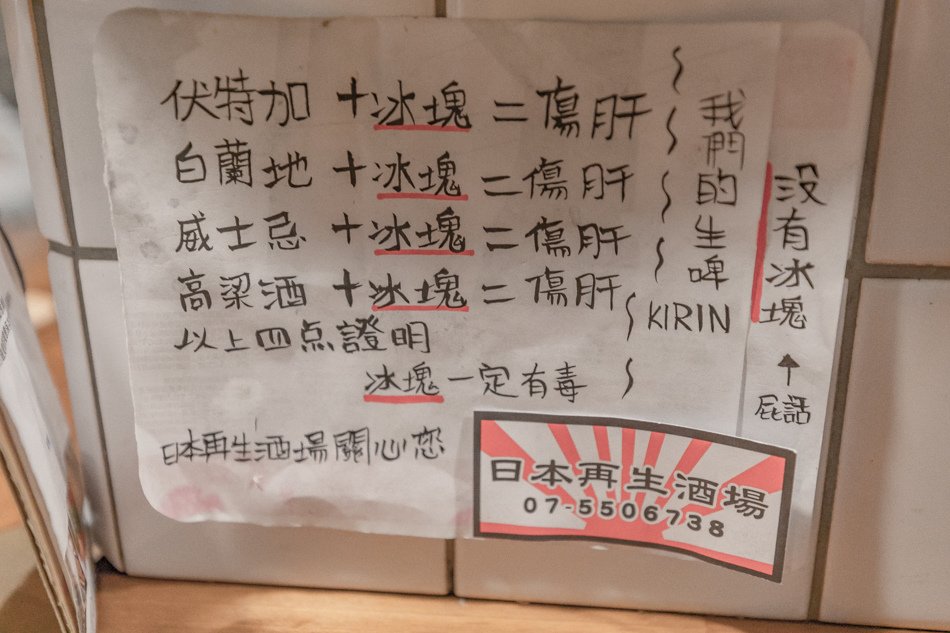 伏特加 + 冰塊 = 傷肝
白蘭地 + 冰塊 = 傷肝
威士忌 + 冰塊 = 傷肝
高梁酒 + 冰塊 = 傷肝
以上四点證明
冰塊一定有毒
日本再生酒場關心您
我們的生啤 KIRIN
沒有冰塊
↑
屁話
日本再生酒場
07-5506738